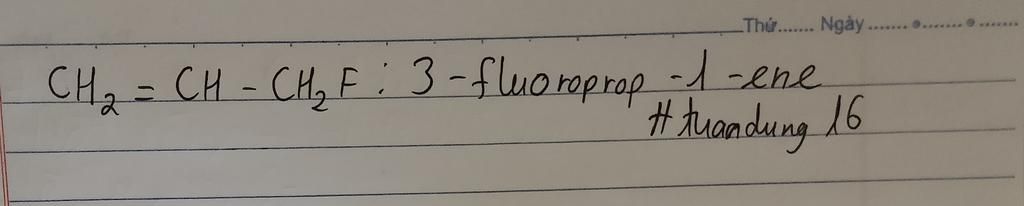 Thứ....... Ngày ....... ● ....... ● .......
CH₂ = CH - CH₂F : 3 - fluoroprop - 1 - ene
# tuandung 16